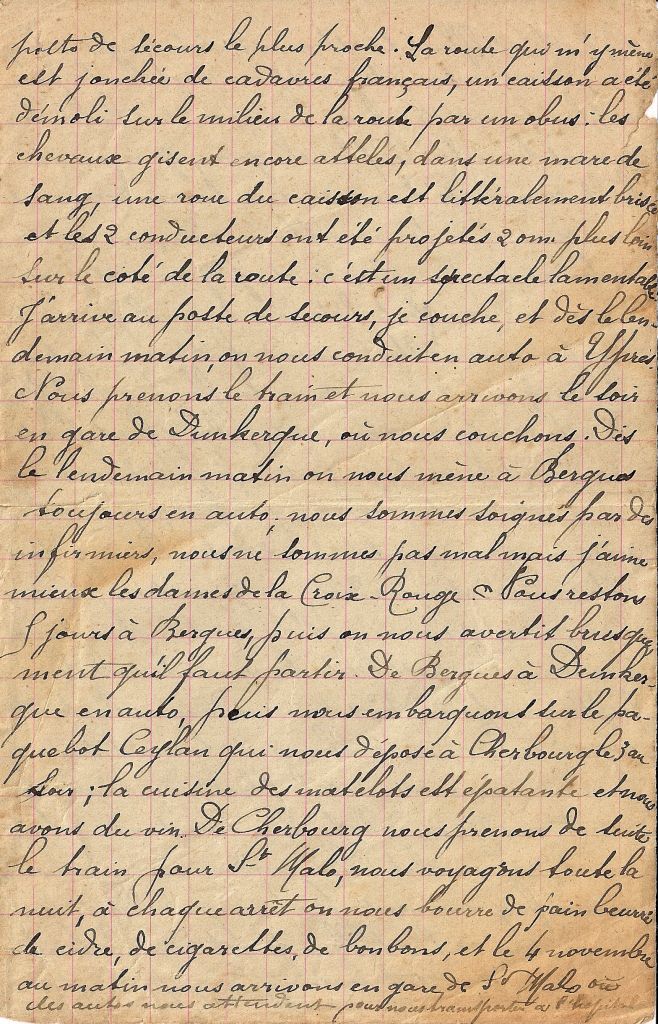 poste de secours le plus proche. La route qui m'y mène
est jonchée de cadavres français, un caisson a été
démoli sur le milieu de la route par un obus : les
chevaux gisent encore attelés, dans une mare de
sang, une roue du caisson est littéralement brisée
et les 2 conducteurs ont été projetés 20m. plus loin
sur le coté de la route : c'est un spectacle lamentable
J'arrive au poste de secours, je couche, et dès le len-
demain matin, on nous conduit en auto à Ypres.
Nous prenons le train et nous arrivons le soir
en gare de Dunkerque, où nous couchons. Dès
le lendemain matin on nous mène à Bergues
toujours en auto, nous sommes soignés par des
infirmiers, nous ne sommes pas mal mais j'aime
mieux les dames de la Croix-Rouge. Nous restons
5 jours à Bergues, puis on nous avertit brusque
ment qu'il faut partir. De Bergues à Dunker-
que en auto, puis nous embarquons sur le pa-
quebot Ceylan qui nous dépose à Cherbourg le 3 au
soir ; la cuisine des matelots est épatante et nous
avons du vin. De Cherbourg nous prenons de suite
le train pour St Malo, nous voyageons toute la
nuit, à chaque arrêt on nous bourre de pain beurré
de cidre, de cigarettes, de bonbons, et le 4 novembre
au matin nous arrivons en gare de St Malo où
des autos nous attendent pour nous transporter à l'hôpital